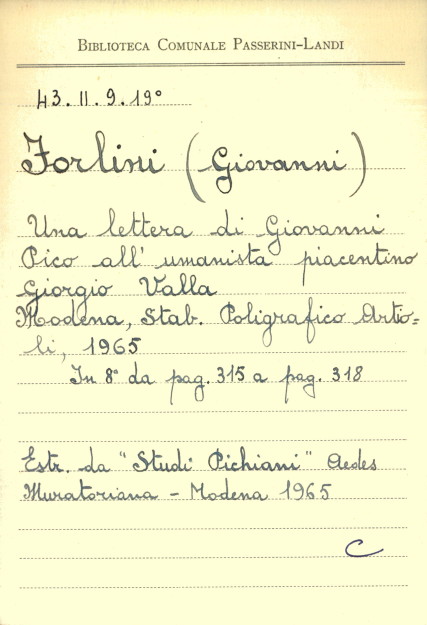 BIBLIOTECA COMUNALE PASSERINI-LANDI
43. II. 9. 19°
Forlini (Giovanni)
Una lettera di Giovanni
Pico all' umanista piacentino
Giorgio Valla
Modena, Stab. Poligrafico Artio=
li, 1965
In 8° da pag. 315 a pag. 318
Estr. da "Studi Pichiani" Aedes
Muratoriana - Modena 1965
C